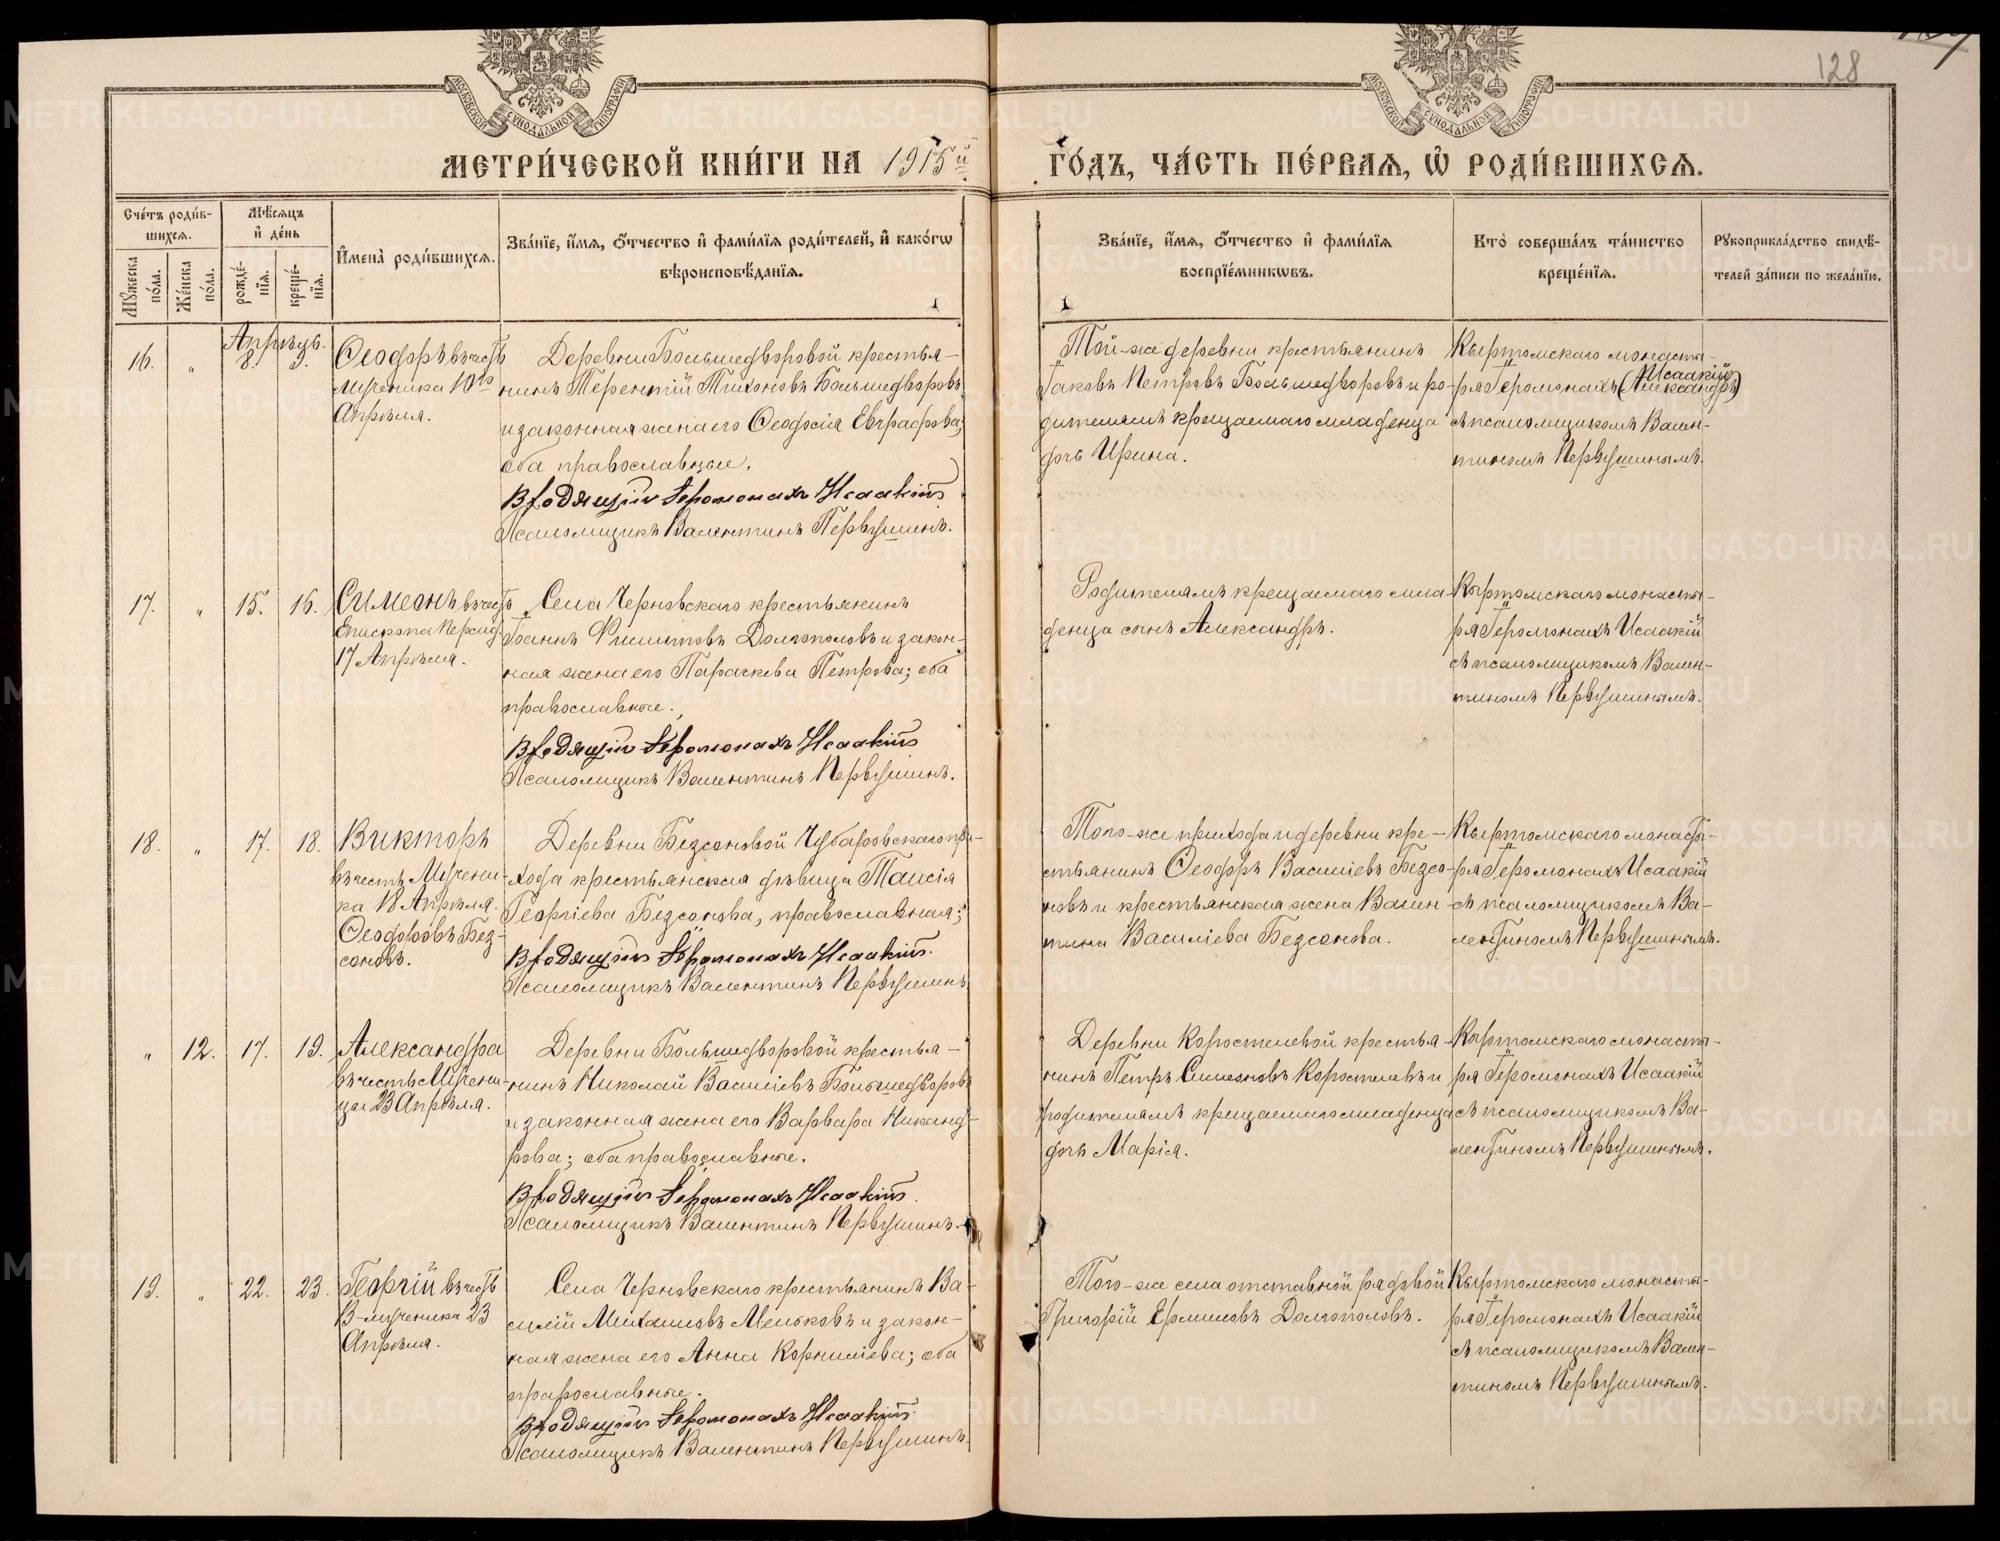 128
МОСКОВСКОЙ СѴНОДАЛЬНОЙ ТИПОГРАФІИ
МОСКОВСКОЙ СѴНОДАЛЬНОЙ ТИПОГРАФІИ
МЕТРИ́ЧЕСКОЙ КНИ́ГИ НА 1915й ГО́ДЪ, ЧА́СТЬ ПЕ́РВАѦ, Ѡ҆ РОДИ́ВШИХСѦ.
Сче́тъ роди́в-
шихсѧ.
Мꙋ́жеска по́ла.
Же́нска по́ла.
Мѣ́сѧцъ
и҆ де́нь
рожде́-
нїѧ.
креще́-
нїѧ.
И҆мена̀ роди́вшихсѧ.
Зва́нїе, и҆́мѧ, ѻ҆́тчество и҆ фами́лїѧ роди́телей, и҆ како́гѡ
вѣроисповѣ́данїѧ.
Зва́нїе, и҆́мѧ, ѻ҆́тчество и҆ фами́лїѧ
воспрїе́мникѡвъ.
Кто̀ соверша́лъ та́инство
креще́нїѧ.
Рꙋкоприкла́дство свидѣ́-
телей за́писи по жела́нїю.
16. " Апрѣль. 8. 9.
Ѳеодоръ въ честь
мученика 10го
Апрѣля.
Деревни Большедворовой крестья-
нинъ Терентій Тихоновъ Большедворовъ
и законная жена его Ѳеодосія Евграфова;
оба православные.
Входящій Іеромонахъ Исаакій
Псаломщикъ Валентинъ Первушинъ.
Той-же деревни крестьянинъ
Іаковъ Петровъ Большедворовъ и ро-
дителямъ крещаемаго младенца
дочь Ирина.
Кыртомскаго монасты-
Исаакій
ря Іеромонахъ (Александръ)
съ псаломщикомъ Вален-
тиномъ Первушинымъ.
17. " 15. 16.
Симеонъ въ честь
Епископа Персид.
17 Апрѣля.
Села Черновскаго крестьянинъ
Іоаннъ Филиповъ Долгополовъ и закон-
ная жена его Параскева Петрова; оба
православные.
Входящій Іеромонахъ Исаакій
Псаломщикъ Валентинъ Первушинъ.
Родителямъ крещаемаго мла-
денца сынъ Александръ.
Кыртомскаго монасты-
ря Іеромонахъ Исаакій
съ псаломщикомъ Вален-
тиномъ Первушинымъ.
18. " 17. 18.
Викторъ
въ честь Мучени-
ка 18 Апрѣля.
Ѳеодоровъ Без-
соновъ.
Деревни Безсоновой Чубаровскаго при-
хода крестьянская дѣвица Таисія
Георгіева Безсонова, православная;
Входящій Іеромонахъ Исаакій.
Псаломщикъ Валентинъ Первушинъ
Того-же прихода и деревни кре-
стьянинъ Ѳеодоръ Василіевъ Безсо-
новъ и крестьянская жена Вален-
тина Василіева Безсонова.
Кыртомскаго монасты-
ря Іеромонахъ Исаакій
съ псаломщикомъ Ва-
лентиномъ Первушинымъ.
" 12. 17. 19.
Александра
въ честь Мучени-
цы 23 Апрѣля.
Деревни Большедворовой крестья-
нинъ Николай Василіевъ Большедворовъ
и законная жена его Варвара Никанд-
рова; оба православные.
Входящій Іеромонахъ Исаакій.
Псаломщикъ Валентинъ Первушинъ.
Деревни Коростелевой крестья-
нинъ Петръ Симеоновъ Коростелевъ и
родителямъ крещаемаго младенца
дочь Марія.
Кыртомскаго монасты-
ря Іеромонахъ Исаакій
съ псаломщикомъ Ва-
лентиномъ Первушинымъ.
19. " 22. 23.
Георгій въ честь
В-мученика 23
Апрѣля.
Села Черновскаго крестьянинъ Ва-
силій Михаиловъ Меньковъ и закон-
ная жена его Анна Корниліева; оба
православные.
Входящій Іеромонахъ Исаакій.
Псаломщикъ Валентинъ Первушинъ.
Того-же села отставной рядовой
Григорій Ермиловъ Долгополовъ.
Кыртомскаго монасты-
ря Іеромонахъ Исаакій
съ псаломщикомъ Вален-
тиномъ Первушинымъ.
METRIKI.GASO-URAL.RU